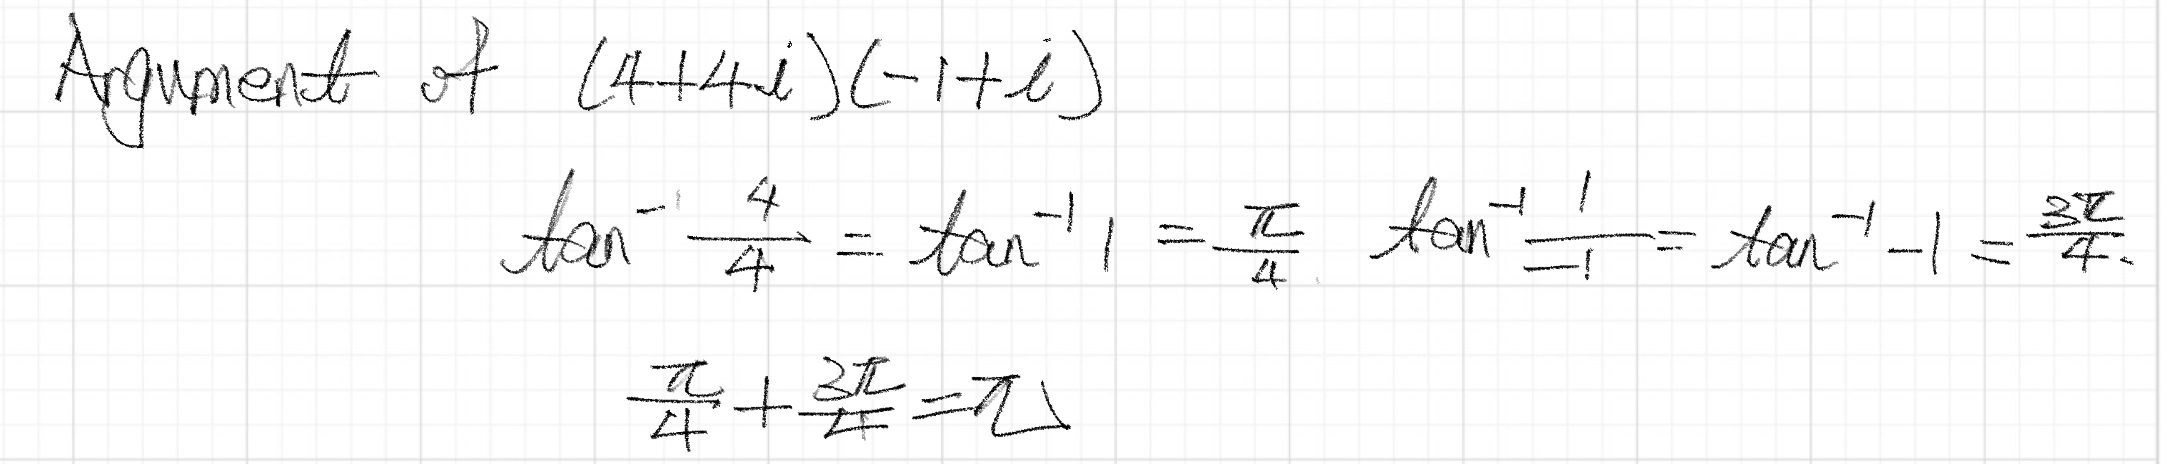 Argument of (4+4i)(-1+i)
tan⁻¹ 4/4 = tan⁻¹ 1 = π/4. tan⁻¹ 1/-1 = tan⁻¹ -1 = 3π/4.
π/4 + 3π/4 = π